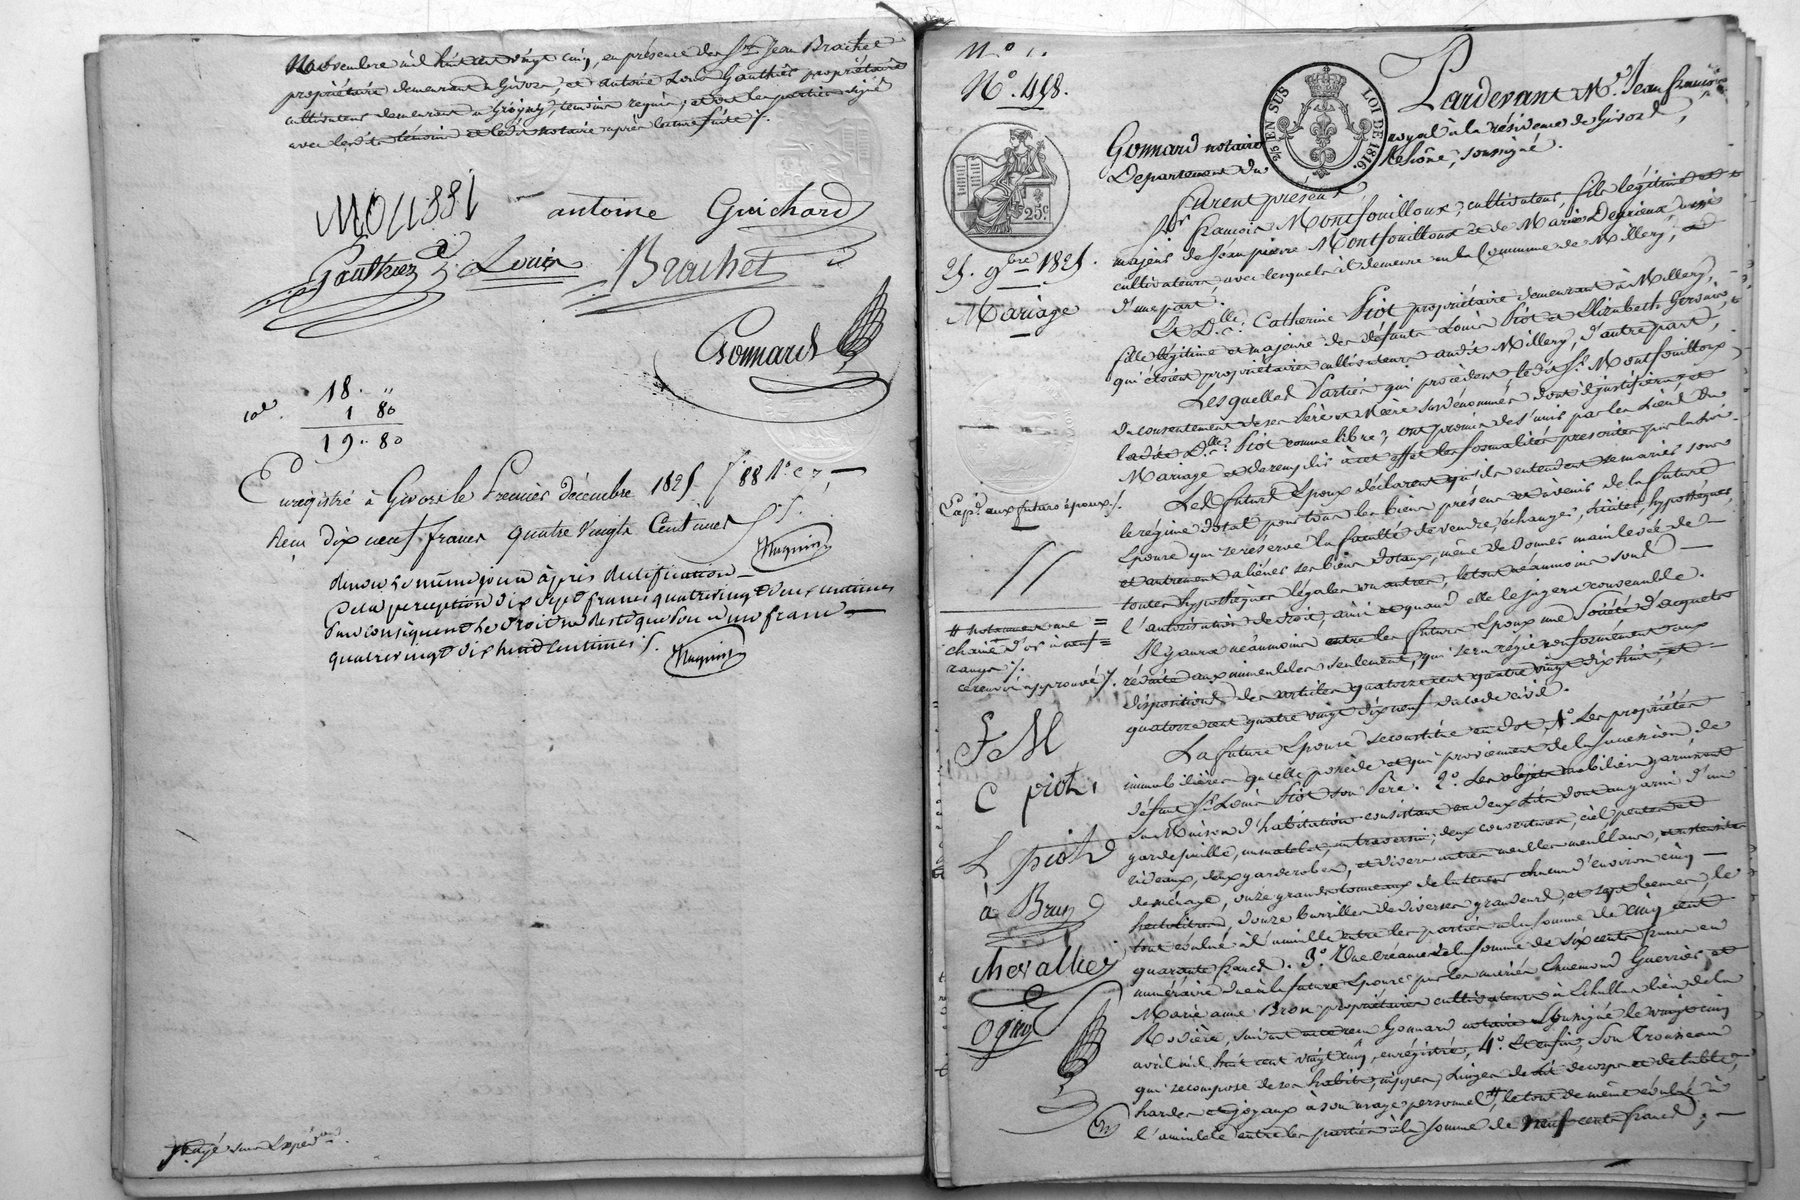 Novembre mil huit cent vingt cinq, en présence des Srs Jean Brachet
propriétaire demeurant à Givors, et antoine Louis Gauthier propriétaire
cultivateur demeurant à Grigny, témoins requis; et ont les parties signé
avec lesdts témoins et ledit notaire après lecture faite ./.
antoine Guichard
Gauthier Louis Brachet
Gonnard
18. "
1 80
19.. 80
Enregistré à Givors le Premier décembre 1825 fo. 88 Ro c 7,
Reçu dix neuf francs quatre vingts Centimes
Huguin
après rectification
de la perception dix sept francs quatrevingt deux centimes
par conséquent le droit ne reste que d'un franc
quatrevingt dix huit Centimes ./.
Huguin
No. 418.
EN SUS
LOI DE 1816.
25c
Pardevant Me. Jean françois
Gonnard notaire royal à la résidence de Givors,
Département du Rhône, soussigné.
Furent présens
Sr. françois Montfouilloux, cultivateur, fils légitime et
majeur de Jean pierre Montfouilloux et de Marie Derieux,
cultivateurs, avec lesquels il demeure en la Commune de Millery,
d'une part.
Et Dlle. Catherine Piot propriétaire demeurant à Millery,
fille légitime et majeure des défunts Louis Piot et Elizabeth
qui étoient propriétaires cultivateurs audit Millery, d'autre part,
Lesquelles Parties qui procèdent ledit Sr. Montfouilloux
du consentement de ses Père et Mère susdénommés dont il justifiera, et
ladite Dlle. Piot comme libre, ont promis de s'unir par les Liens du
Mariage et de remplir à cet effet les formalités prescrites par la loi.
Les futurs Epoux déclarent qu'ils entendent se marier sous
le régime dotal pour tous les biens présens et à venir de la future
Epouse qui se réserve la faculté de vendre, échanger, liciter, hypothéquer,
et autrement aliéner ses biens dotaux, même de donner mainlevée de
toutes hypothèques légales ou autres, le tout néanmoins sous
l'autorisation de droit, ainsi et quand elle le jugera convenable.
Il y aura néanmoins entre les futurs Epoux une Société d'acquets
réduite aux immeubles seulement, qui sera régie conformément aux
dispositions des articles quatorze cent quatre vingt dix huit, et
quatorze cent quatre vingt dix neuf du code civil.
La future Epouse se constitue en dot, 1o. Les propriétés
immobilières qu'elle possède et qui proviennent de la succession de
défunt Sr. Louis Piot son Père. 2o. Les objets mobiliers garnissant
sa Maison d'habitation consistant en deux Lits dont un garni d'un
gardepaille, un matelas, un traversin, deux couvertures, ciel, pentes et
rideaux, deux garderobes, et divers autres meubles meublans, et ustensiles
de ménage, onze grands tonneaux de la teneur chacun d'environ cinq
hectolitres, douze barrilles de diverses grandeurs, et sept bennes, le
tout évalué à l'amiable entre les parties à la somme de cinq cent
quarante francs. 3o. Une créance de la somme de six cents francs en
numéraire due à la future Epouse par les mariés Guerrier et
Marie anne Bron propriétaires cultivateurs à lieu de la
Rosière, suivant acte reçu Gonnard notaire Soussigné le vingt cinq
avril mil huit cent vingt cinq, enregistré, 4o. Et enfin, Son Trousseau
qui se compose de ses habits, nippes, Linges de Lit de corps et de table,
hardes et joyaux à son usage personnel #, le tout de même évalué à
l'amiable entre les parties à la somme de neuf cents francs;
25. 9bre 1825.
Mariage
Expd. aux futurs époux ./.
# notamment une
chaine d'or à neuf
rangs ./.
ce renvoi approuvé ./.
F M
C piot
L piot
a Brun
chevallier
ogier